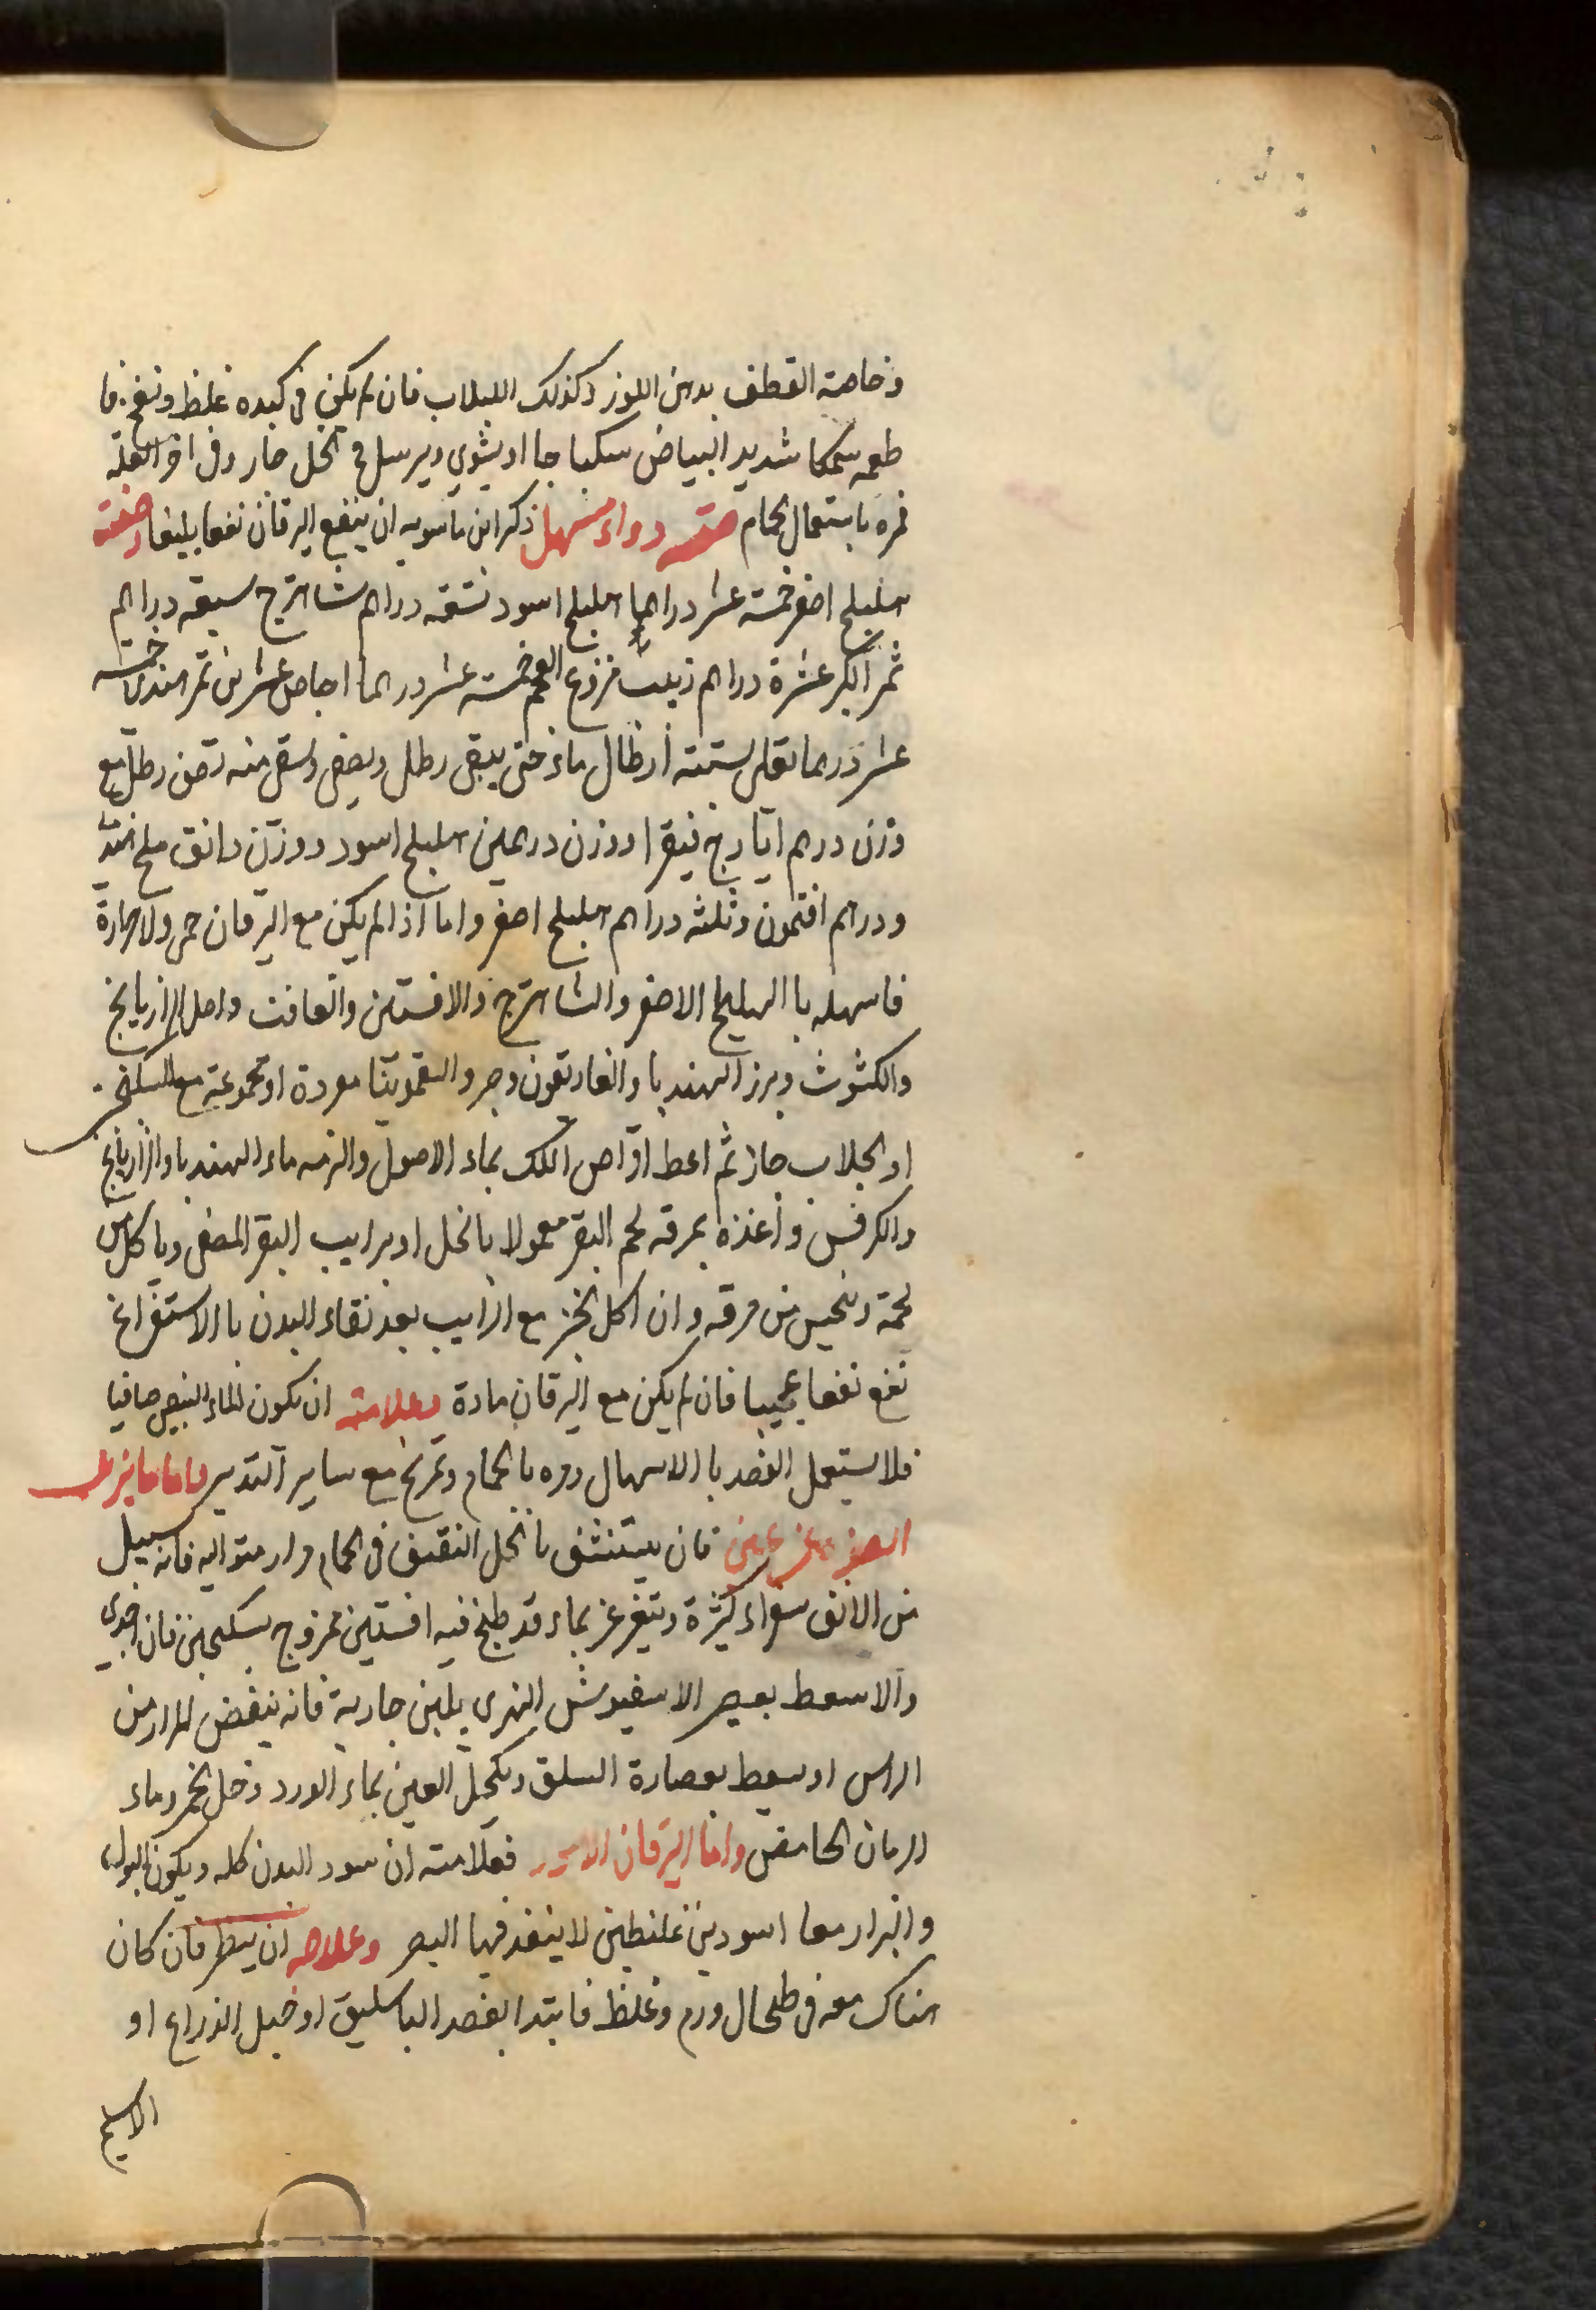 وخاصة القطف بدهن اللوز وكذلك اللبلاب فان لم يكن في كبده غلظ ونفخ فا
طعمه سمكا شديد البياض سكباجا او يشوي ويرسل في الخل حار وفي اخر العلة
فمره باستعمال الحمام صفة دواء مسهل ذكر ابن ماسويه ان ينفع اليرقان نفعا بليغا وصفته
هليلج اصفر خمسة عشر دراهما هليلج اسود تسعة دراهم شاهترج سبعة دراهم
ثمر الكبر عشرة دراهم زبيب منزوع العجم خمسة عشر درهما اجاص عشرين تمر هندي خمسة
عشر درهما تغلى بستة أرطال ماء حتى يبقى رطل ويصفى ويسقى منه نصف رطل مع
وزن درهم ايارج فيقرا ووزن درهمين هليلج اسود ووزن دانق ملح هندي
ودرهم افتمون وثلثه دراهم هليلج اصفر واما اذا لم يكن مع اليرقان حمى ولا حرارة
فاسهله با الهليلج الاصفر والشاهترج والافسنتين والغافت واصل الرازيانج
والكشوث وبزر الهندبا والغاريقون وصبر والسقمونيا مفردة او مجموعة مع السكنجبين
او الجلاب جاز ثم اعط اقراص اللك بماء الاصول والزمه ماء الهندبا والرازيانج
والكرفس واغذه بمرقه لحم البقر معمولا بالخل او برايب البقر المصفى وياكل من
لحمه وتحسى من مرقه وان اكل الخبز مع الرايب بعد نقاء البدن با الاستفراغ
نفع نفعا عجيبا فان لم يكن مع اليرقان مادة وعلامته ان يكون الماء النبيض صافيا
فلا يستعمل الفصد با الاسهال ومره با الحمام وتمرخ مع ساير التدبير واما ما يزيل
الصفرة عن عين فان يستنشق با الخل الثقيف في الحمام مرار متواليه فانه يسيل
من الانف صفراء كثيرة ويتغرغر بماء قد طبخ فيه افسنتين ممزوج بسكنجبين فان اجدى
والا سعط بعصير الاسفيوش الندي بلبن جارية فانه ينفض المرار من
الراس او يسعط بعصارة السلق ويكحل العين بماء الورد وخل الخمر وماء
الرمان الحامض واما اليرقان الاسود فعلامته ان يسود البدن كله ويكون البول
والبراز معا اسودين غليظين لا ينفذ فيهما البصر وعلاجه ان ينظر فان كان
هناك معه في طحال ورم وغلظ فابتدا بفصد الباسليق او حبل الذراع او
الاسيلم